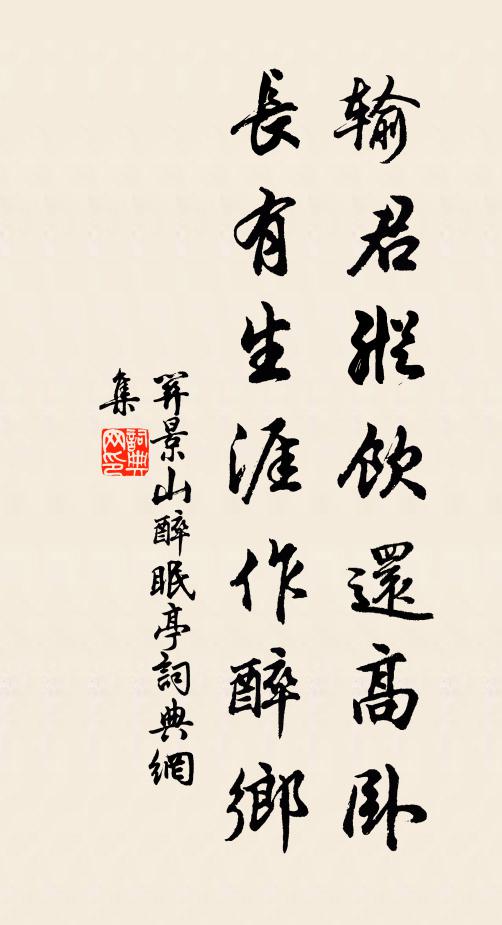 輸君縱飲還高臥
長有生涯作醉鄉
羿景山醉眠亭詞典網
集
詞典
网印